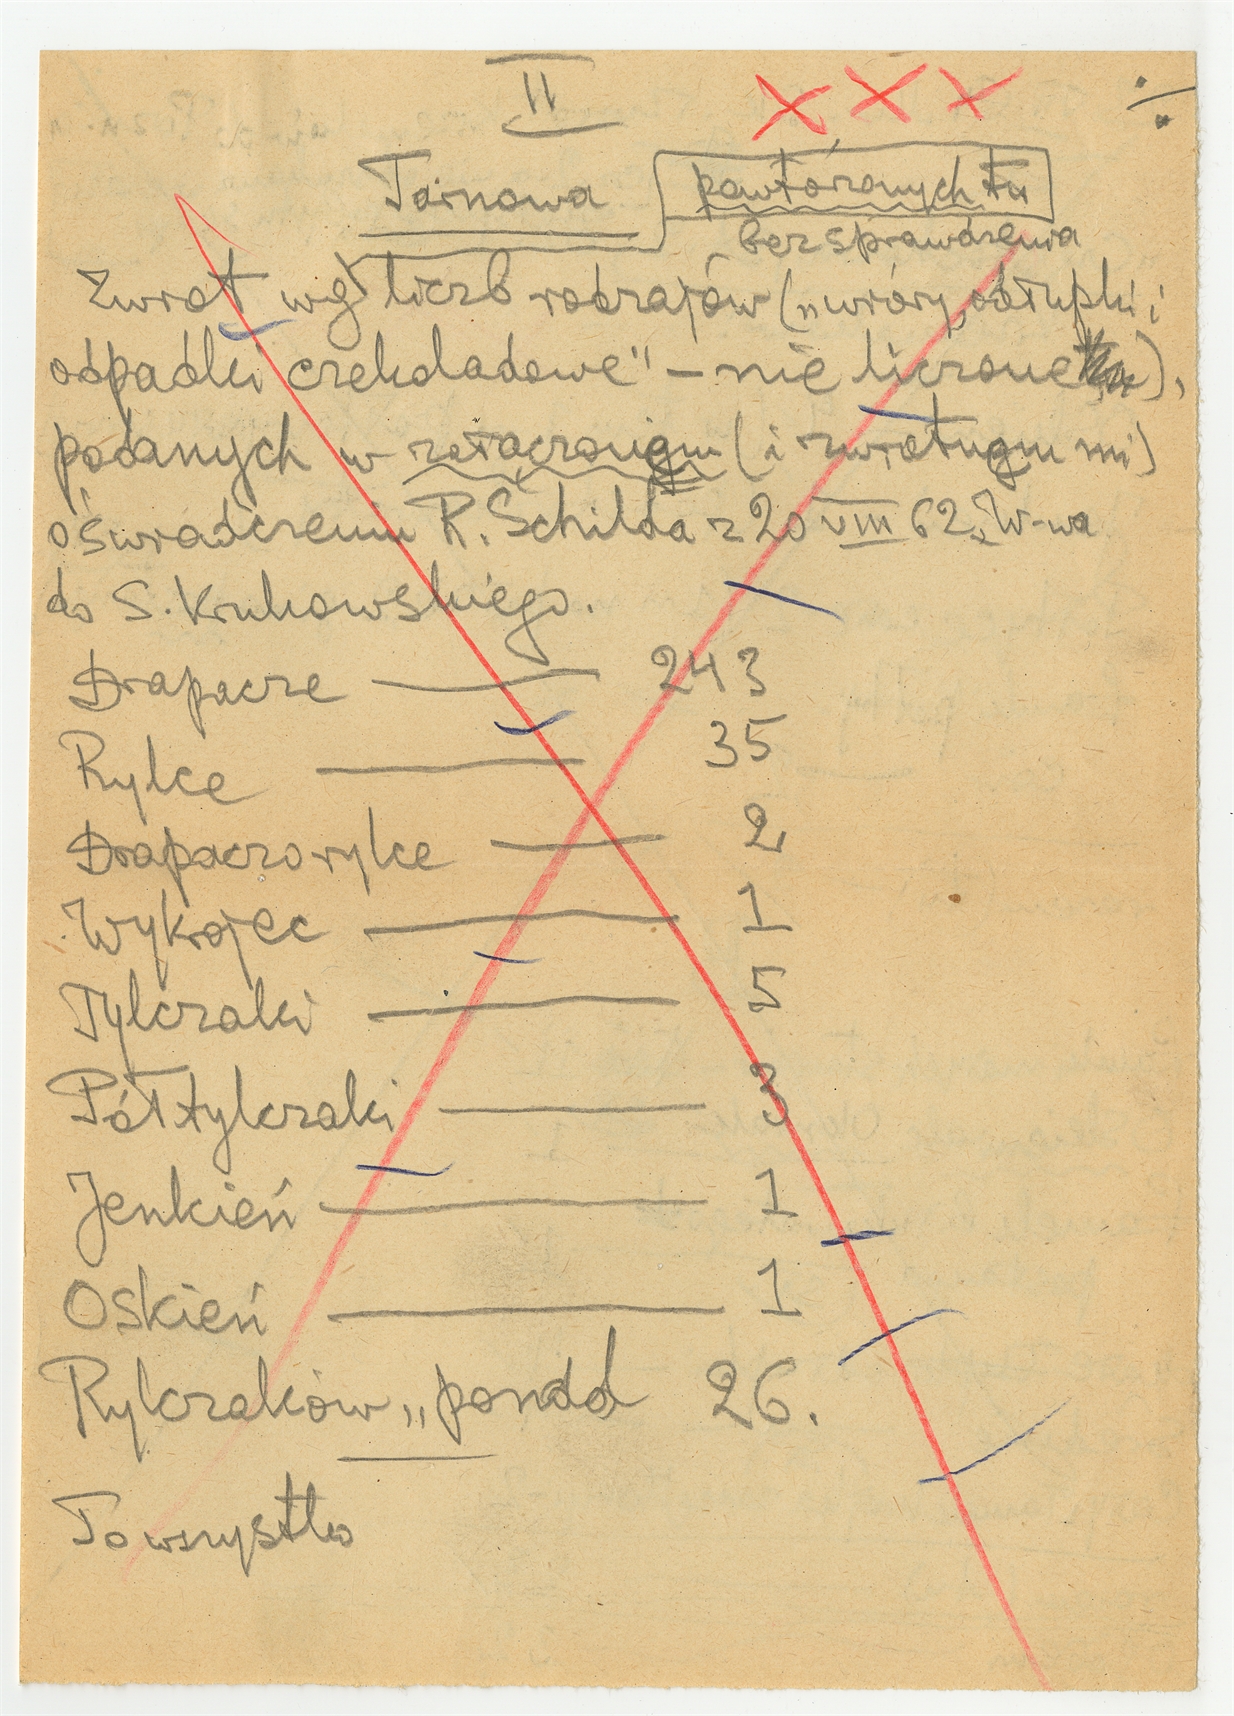 II
XXX
÷
Tarnowa
powtórzonych tu
bez sprawdzenia
Zwrot wg liczb rodzajów („wióry, odłupki i
odpadki czekoladowe" – nie liczone),
podanych w załączonym (i zwrotnym mi)
oświadczeniu R. Schilda z 20 VIII 62, W-wa
do S. Krukowskiego.
Drapacze — 243
Rylce — 35
Drapaczorylce — 2
Wykrojec — 1
Tylczaki — 5
Półtylczaki — 3
Jenkień — 1
Oskień — 1
Rylczaków „ponad 26.
To wszystko